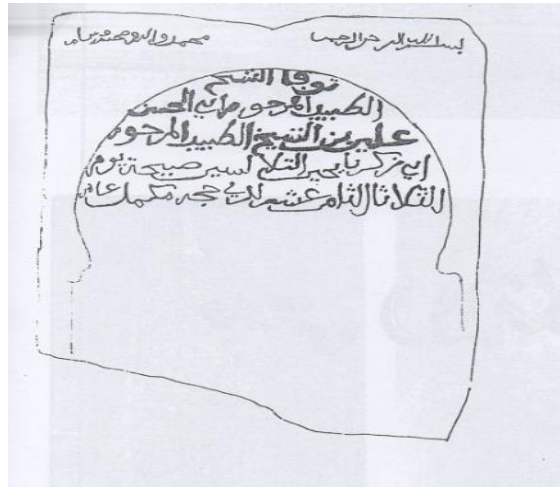 بسم الله الرحمن الرحيم
محمد وآله وصحبه
توفي الشيخ
الطبيب المرحوم أبي الحسن
علي بن الشيخ الطبيب المرحوم
أبي زكريا يحيى التلالسي صبيحة يوم
الثلاثا الثامن عشر لذي حجة مكمل عام